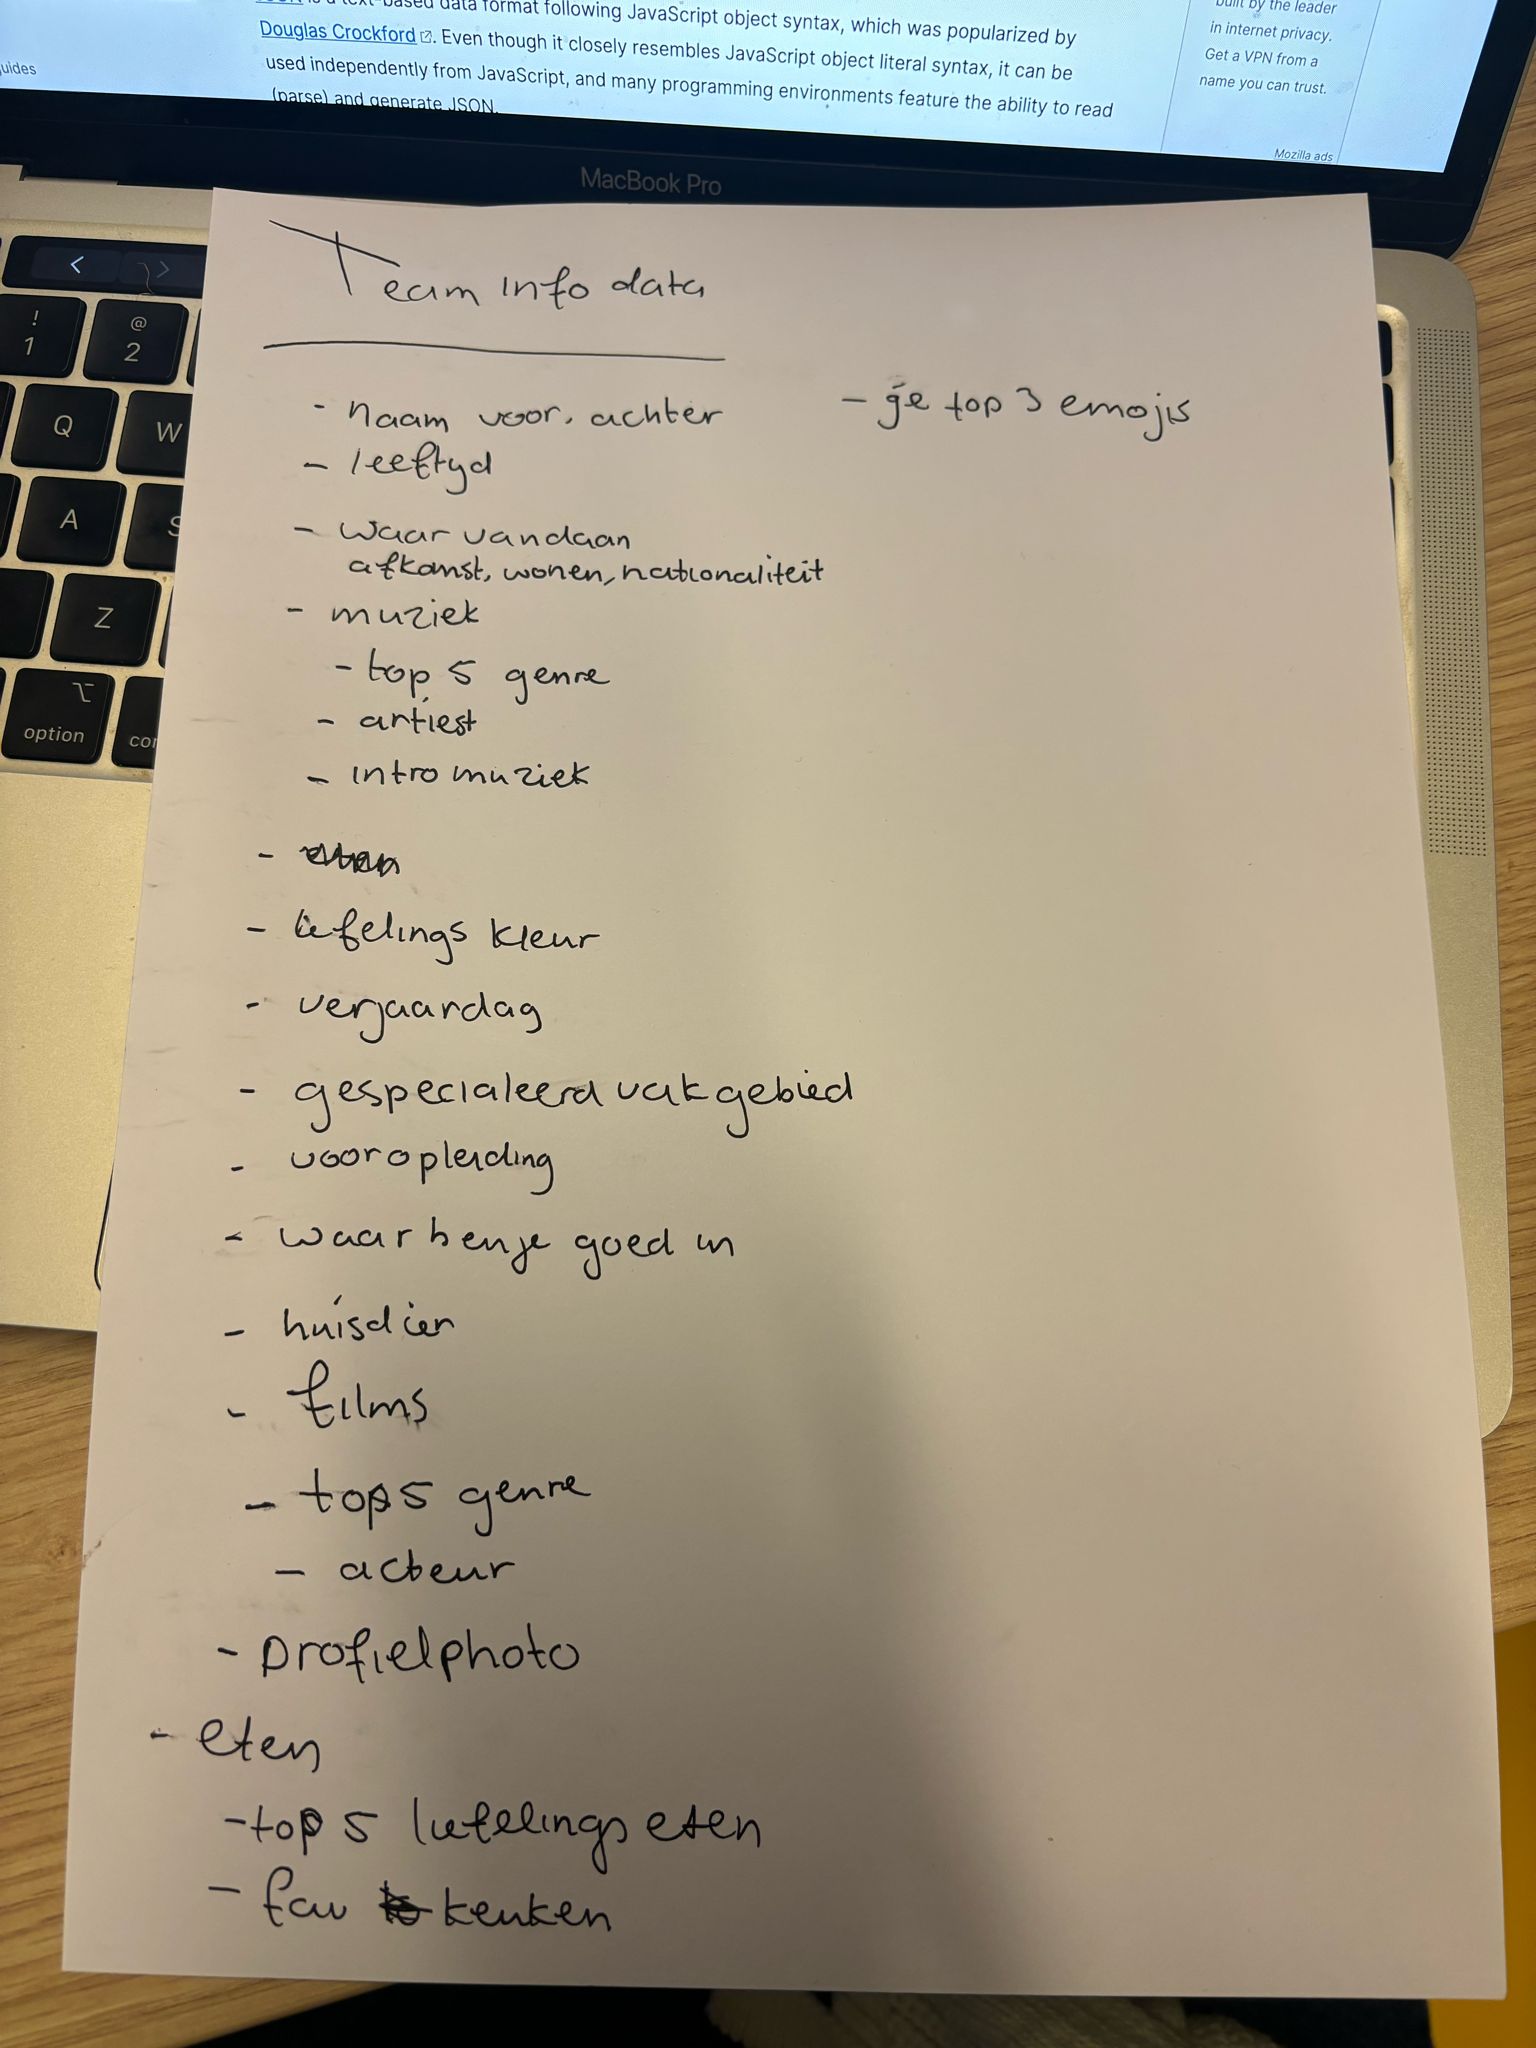 is a text-based data format following JavaScript object syntax, which was popularized by
Douglas Crockford. Even though it closely resembles JavaScript object literal syntax, it can be
used independently from JavaScript, and many programming environments feature the ability to read
(parse) and generate JSON.
uides
built by the leader
in internet privacy.
Get a VPN from a
name you can trust.
Mozilla ads
MacBook Pro
! 1
@ 2
Q
W
A
S
Z
option
Team info data
- naam voor. achter
- leeftyd
- waar vandaan
afkomst, wonen, nationaliteit
- muziek
- top 5 genre
- artiest
- intro muziek
- eten
- liefelings kleur
- verjaardag
- gespecialeerd vakgebied
- vooropleiding
- waar ben je goed in
- huisdier
- films
- top 5 genre
- acteur
- profielphoto
- eten
- top 5 liefelings eten
- fav keuken
- je top 3 emojis